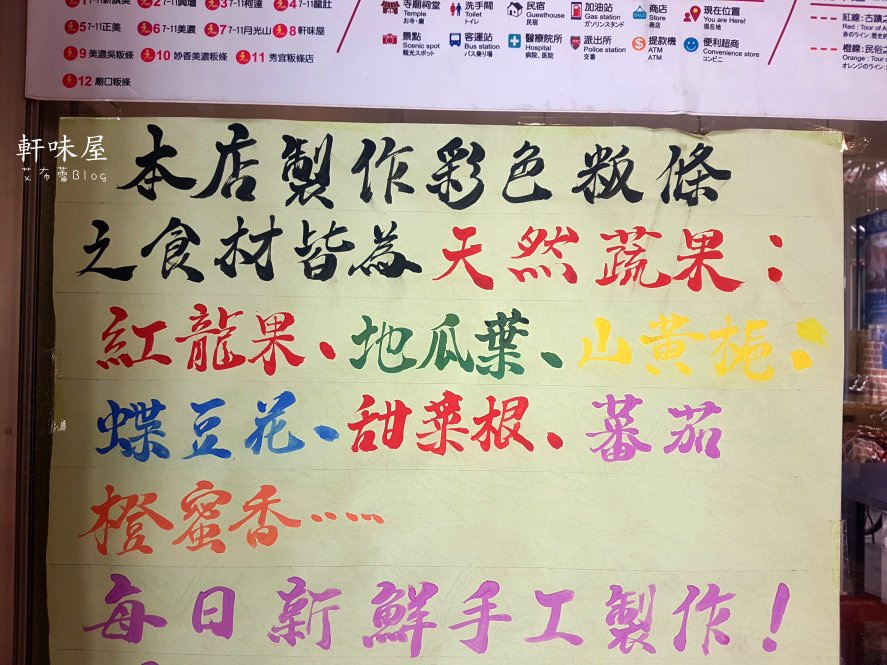 4 7-11龍肚
5 7-11正美
6 7-11美濃
7 7-11月光山
8 軒味屋
9 美濃吳粄條
10 妙香美濃粄條
11 秀宜粄條店
12 廟口粄條
寺廟祠堂
Temple
お寺・廟
洗手間
Toilet
トイレ
民宿
Guesthouse
民宿
加油站
Gas station
ガソリンスタンド
商店
Store
商店
現在位置
You are Here!
現在地
景點
Scenic spot
観光スポット
客運站
Bus station
バス乗り場
醫療院所
Hospital
病院、医院
派出所
Police station
交番
提款機
ATM
ATM
便利超商
Convenience store
コンビニ
軒味屋
艾布蕾Blog
本店製作彩色粄條
之食材皆為天然蔬果：
紅龍果、地瓜葉、山黃梔、
蝶豆花、甜菜根、蕃茄
橙蜜香……
每日新鮮手工製作！